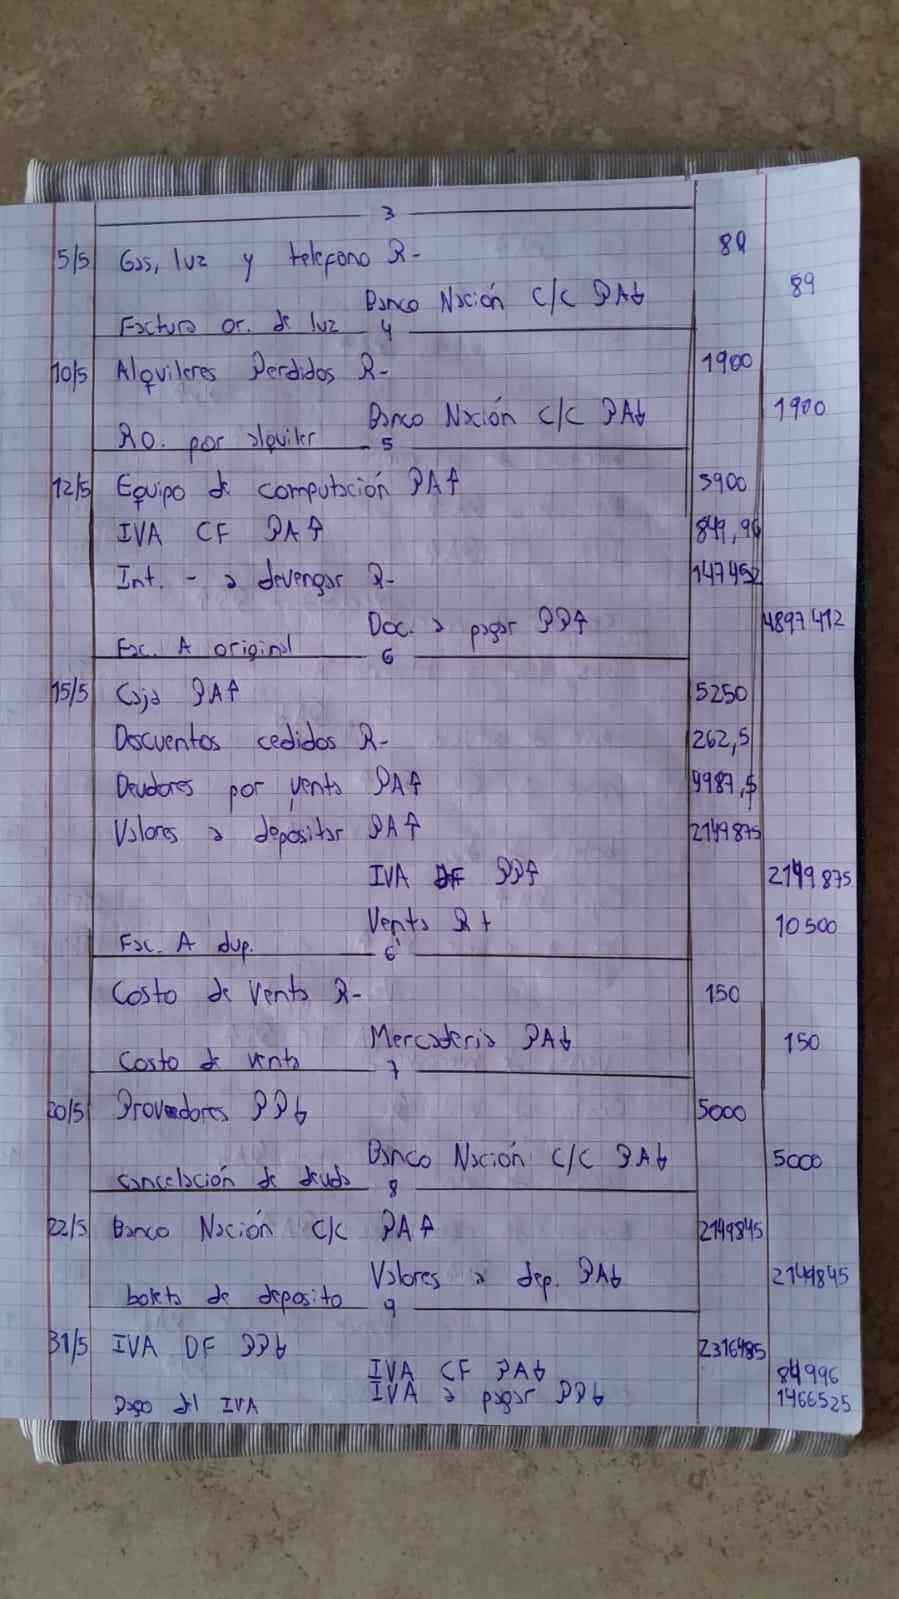 3
5/5 Gas, luz y telefono R- 89
Banco Nación C/C PA↓ 89
Factura or. de luz 4
10/5 Alquileres Perdidos R- 1900
Banco Nación C/C PA↓ 1900
RO. por alquiler 5
12/5 Equipo de computación PA↑ 3900
IVA CF PA↑ 849,96
Int. - a devengar R- 147452
Doc. a pagar PP↑ 4897412
Fac. A original 6
15/5 Caja PA↑ 5250
Descuentos cedidos R- 262,5
Deudores por venta PA↑ 9987,5
Valores a depositar PA↑ 2149875
IVA DF PP↑ 2149875
Venta R+ 10500
Fac. A dup. 6'
Costo de Venta R- 150
Mercaderia PA↓ 150
Costo de venta 7
20/5 Provedores PP↓ 5000
Banco Nación C/C PA↓ 5000
cancelación de deuda 8
22/5 Banco Nación C/C PA↑ 2149845
Valores a dep. PA↓ 2149845
boleta de deposito 9
31/5 IVA DF PP↓ 2316485
IVA CF PA↓ 84996
IVA a pagar PP↓ 1466525
Pago del IVA